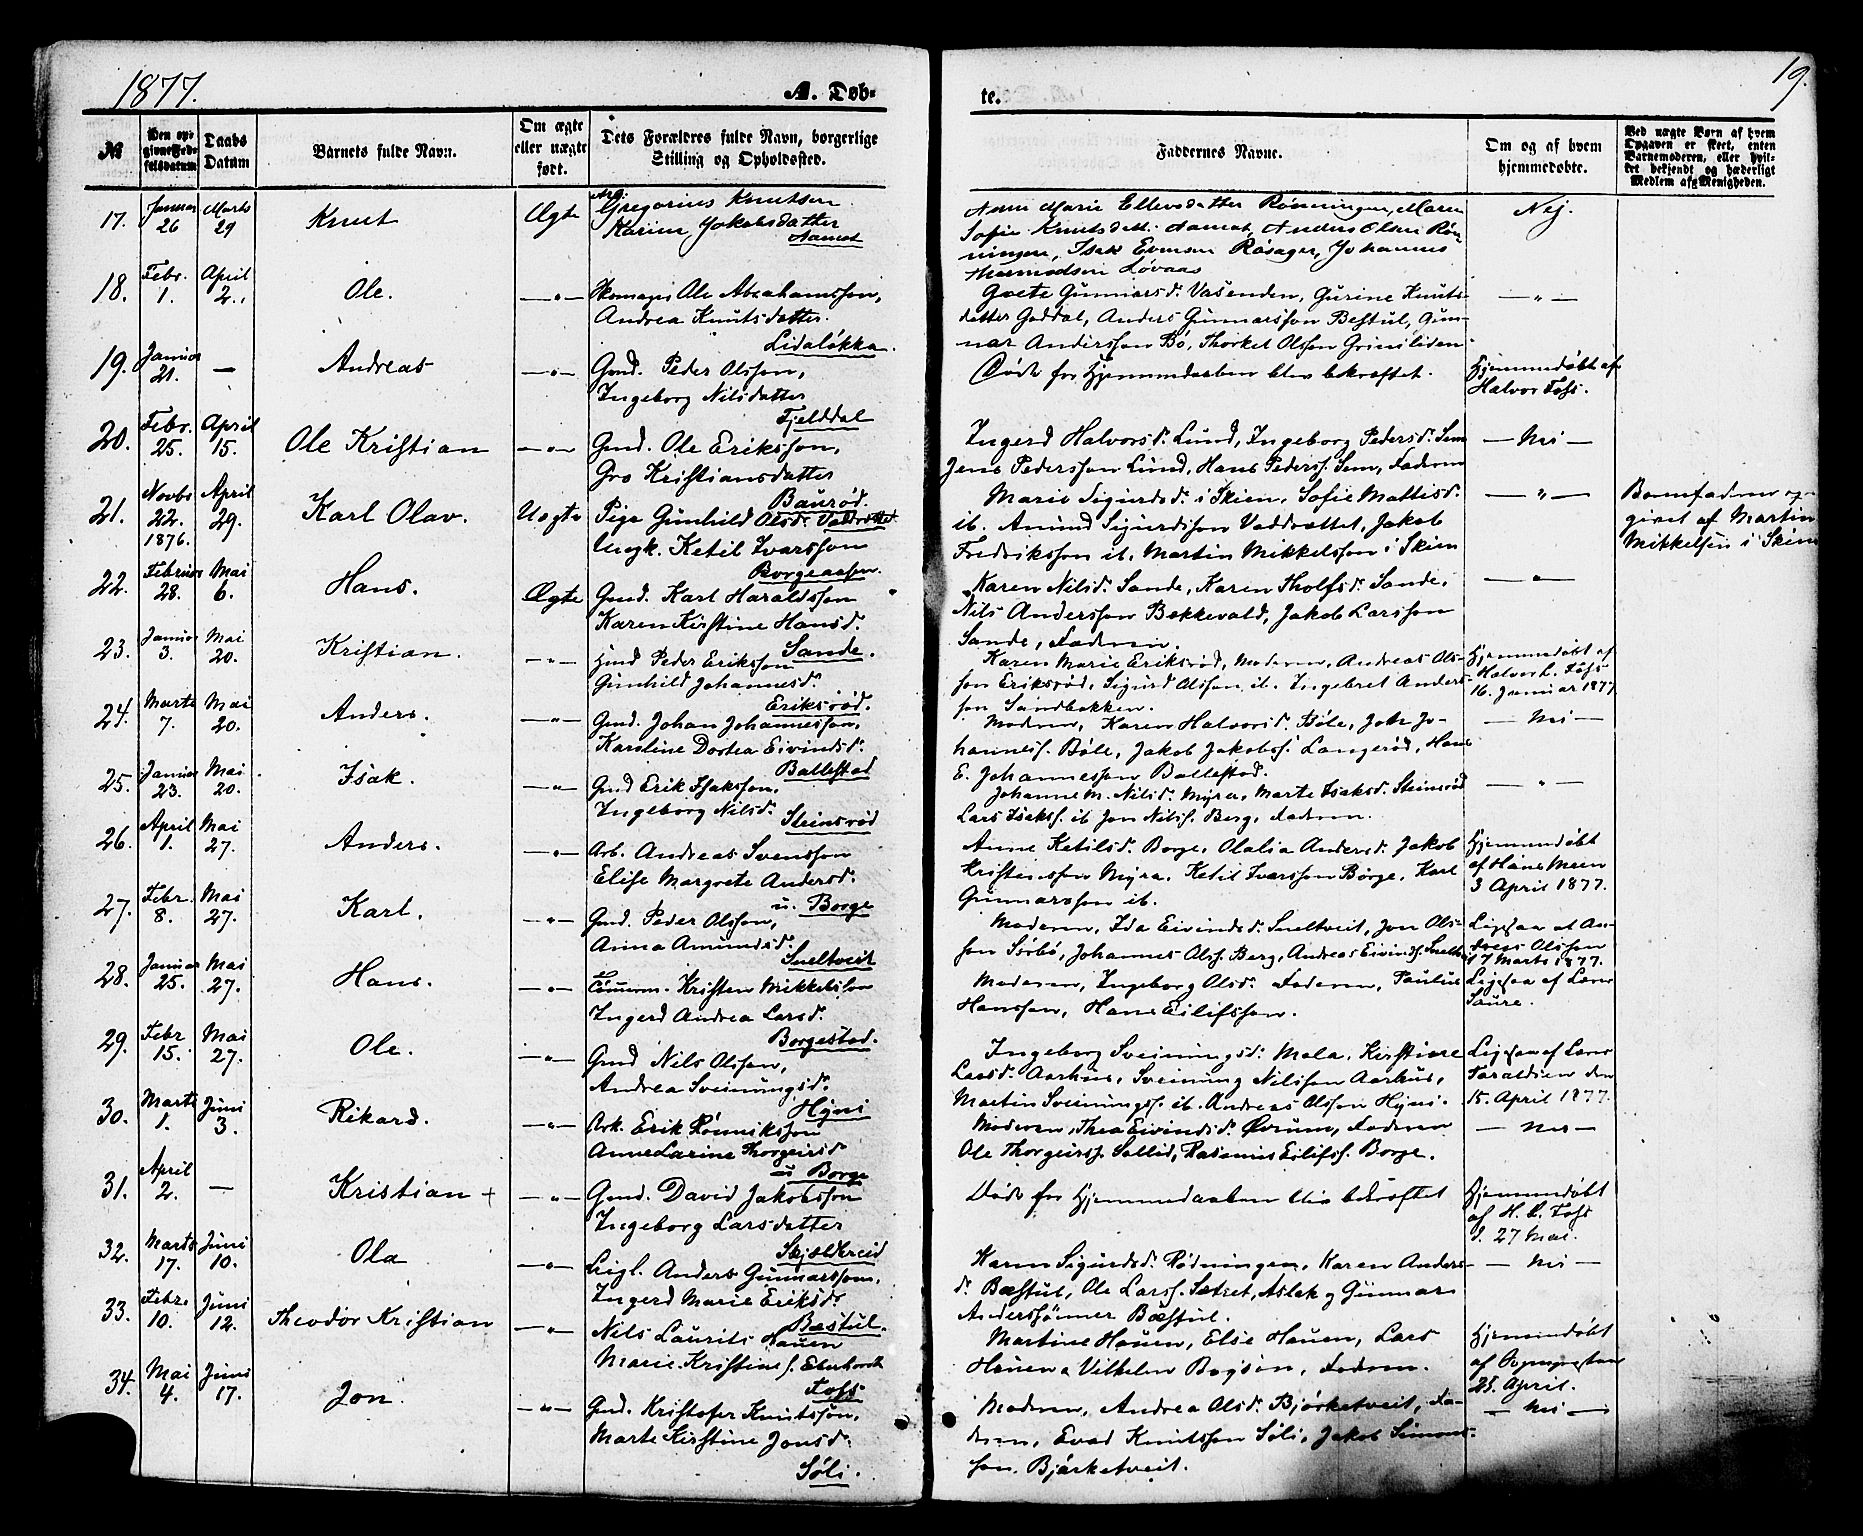 1877.
A. Døb-
te.
19.
№
Den opgivne Fødselsdatum
Daabs Datum
Barnets fulde Navn.
Om ægte eller uægte født.
Dets Forældres fulde Navn, borgerlige Stilling og Opholdssted.
Faddernes Navne.
Om og af hvem hjemmedøbte.
Ved uægte Børn af hvem Opgaven er skeet, enten Barnemoderen, eller hvilket bekjendt og hæderligt Medlem af Menigheden.
17. Januar 26 Marts 29 Knut Ægte Gregorius Knutsen
Karine Jakobsdatter
Aamot
Anne Marie Ellevsdatter Rønningen, Maren
Sofie Knutsdatt. Aamot, Anders Olsen Røn-
ningen, Isak Evensen Røsager, Johannes
Thormodsen Løvaas
Nej.
18. Febr. 1. April 2. Ole. — " — Skomager Ole Abrahamssøn,
Andrea Knutsdatter.
Lidaløkka.
Grete Gunnarsd. Vasenden, Gurine Knuts-
datter Goddal, Anders Gunnarssøn Bestul, Gun-
nar Anderssøn Bø, Thorkel Olssøn Grinilien
— " —
19. Januar 21. — Andreas — " — Gmd. Peder Olssøn,
Ingeborg Nilsdatter
Fjelddal
Døde før Hjemmedaaben blev bekræftet.
Hjemmedøbt af
Halvor Foss.
20. Febr. 25. April 15. Ole Kristian — " — Gmd. Ole Erikssøn,
Gro Kristiansdatter
Baurød.
Ingerd Halvorsd. Lund, Ingeborg Pedersd. Sem
Jens Pederssøn Lund, Hans Peders. Sem, Faderen
— Nei —
21. Novbr 22. 1876. April 29. Karl Olav. Uægte Pige Gunhild Olsd. Valdrættet
Ungk. Ketil Ivarssøn
Borgeaasen.
Marie Sigurdsd. i Skien, Sofie Mattisd.
ib. Amund Sigurdssøn Vaddrættet, Jakob
Fredrikssøn ib. Martin Mikkelssøn i Skien
— " —
Barnefaderen op-
givet af Martin
Mikkelsen i Skien
22. Februar 28. Mai 6. Hans. Ægte Gmd. Karl Haraldssøn
Karen Kirstine Hansd.
Sande.
Karen Nilsd. Sande, Karen Tholfsd. Sande,
Nils Anderssøn Bekkevald, Jakob Larssøn
Sande, Faderen.
— " —
23. Januar 3. Mai 20. Kristian. — " — Gmd Peder Erikssøn
Gunhild Johannesd.
Eriksrød.
Karen Marie Eriksrød, Moderen, Andreas Ols-
søn Eriksrød, Sigurd Olssøn ib. Ingebret Anders-
søn Sandbakken.
Hjemmedøbt af
Halvor L. Foss
16. Januar 1877
24. Marts 7. Mai 20. Anders. — " — Gmd. Johan Johannessøn,
Karoline Dortea Eivindsd.
Ballestad
Moderen, Karen Halvorsd. Bøle, Johs Jo-
hanness. Bøle, Jakob Jakobss. Langerød, Hans
E. Johannessøn Ballestad.
— Nei —
25. Januar 23. Mai 20. Isak. — " — Gmd Erik Isakssøn,
Ingeborg Nilsd.
Steinsrød
Johanne M. Nilsd. Myra, Marte Isaksd. Steinsrød
Lars Isakss. ib Jon Nilss. Berg, Faderen.
— " —
26. April 1. Mai 27. Anders. — " — Arb. Andreas Svenssøn
Elise Margrete Andersd.
u. Borge
Anne Ketilsd. Borge, Olalia Andersd. Jakob
Kristenssøn Myra, Ketil Ivarssøn Børge, Karl
Gunnarssøn ib.
Hjemmedøbt
af Hans Meen
3 April 1877.
27. Febr. 8. Mai 27. Karl. — " — Gmd. Peder Olssøn,
Anna Amundsd.
Sneltveit
Moderen, Ida Eivindsd. Sneltveit, Jon Ols-
søn Sørbø, Johannes Olss. Berg, Andreas Eivinds. Sneltv.
Ligesaa af An-
dreas Olssøn
17 Marts 1877.
28. Januar 25. Mai 27. Hans. — " — Tømmerm. Kristen Mikkelssøn
Ingerd Andrea Larsd.
Borgestad.
Moderen, Ingeborg Olsd. Faderen, Paulus
Hanssøn, Hans Eilifssøn.
Ligesaa af Lærer
Saure.
29. Febr 15. Mai 27. Ole. — " — Gmd Nils Olssøn,
Andrea Sveinungsd.
Hyni
Ingeborg Sveinungsd. Mæla, Kirstine
Larsd. Aarhus, Sveinung Nilssøn Aarhus,
Martin Sveinungss. ib. Andreas Olssøn Hyni.
Ligesaa af Lærer
Taraldsen den
15. April 1877.
30. Marts 1. Juni 3. Rikard. — " — Arb. Erik Rønnikssøn
Anne Larine Thorgeirsd
u Borge
Moderen, Thea Eivindsd. Øvrum, Faderen
Ole Thorgeirss. Sollid, Rasmus Eilifss. Borge.
— Nei —
31. April 2. — Kristian + — " — Gmd. David Jakobssøn
Ingeborg Larsdatter
Skjeldkreid
Døde før Hjemmedaaben blev bekræftet
Hjemmedøbt
af H. L. Foss
d. 27 Mai.
32. Marts 17. Juni 10. Ola — " — Leigl. Anders Gunnarssøn,
Ingerd Marie Eriksd.
Bæstul.
Karen Sigurdsd. Rødningen, Karen Anders-
d. Bæstul, Ole Larss. Sætret, Aslak og Gunnar
Anderssønner Bæstul.
— Nei —
33. Febr. 10. Juni 12. Theodor Kristian — " — Nils Laurits Hauen
Marie Kristine f. Eberhardt
Foss
Martine Hauen, Elise Hauen, Lars
Hauen, Vilhelm Bogsøn, Faderen.
Hjemmedøbt
af Sognepresten
25. April.
34. Mai 4. Juni 17. Jon. — " — Gmd. Kristofer Knutssøn,
Marte Kirstine Jonsd.
Søli.
Moderen, Andrea Olsd. Bjørketveit, Fa-
deren, Evad Knutssøn Søli, Jakob Simons-
søn, Bjørketveit.
— Nei —